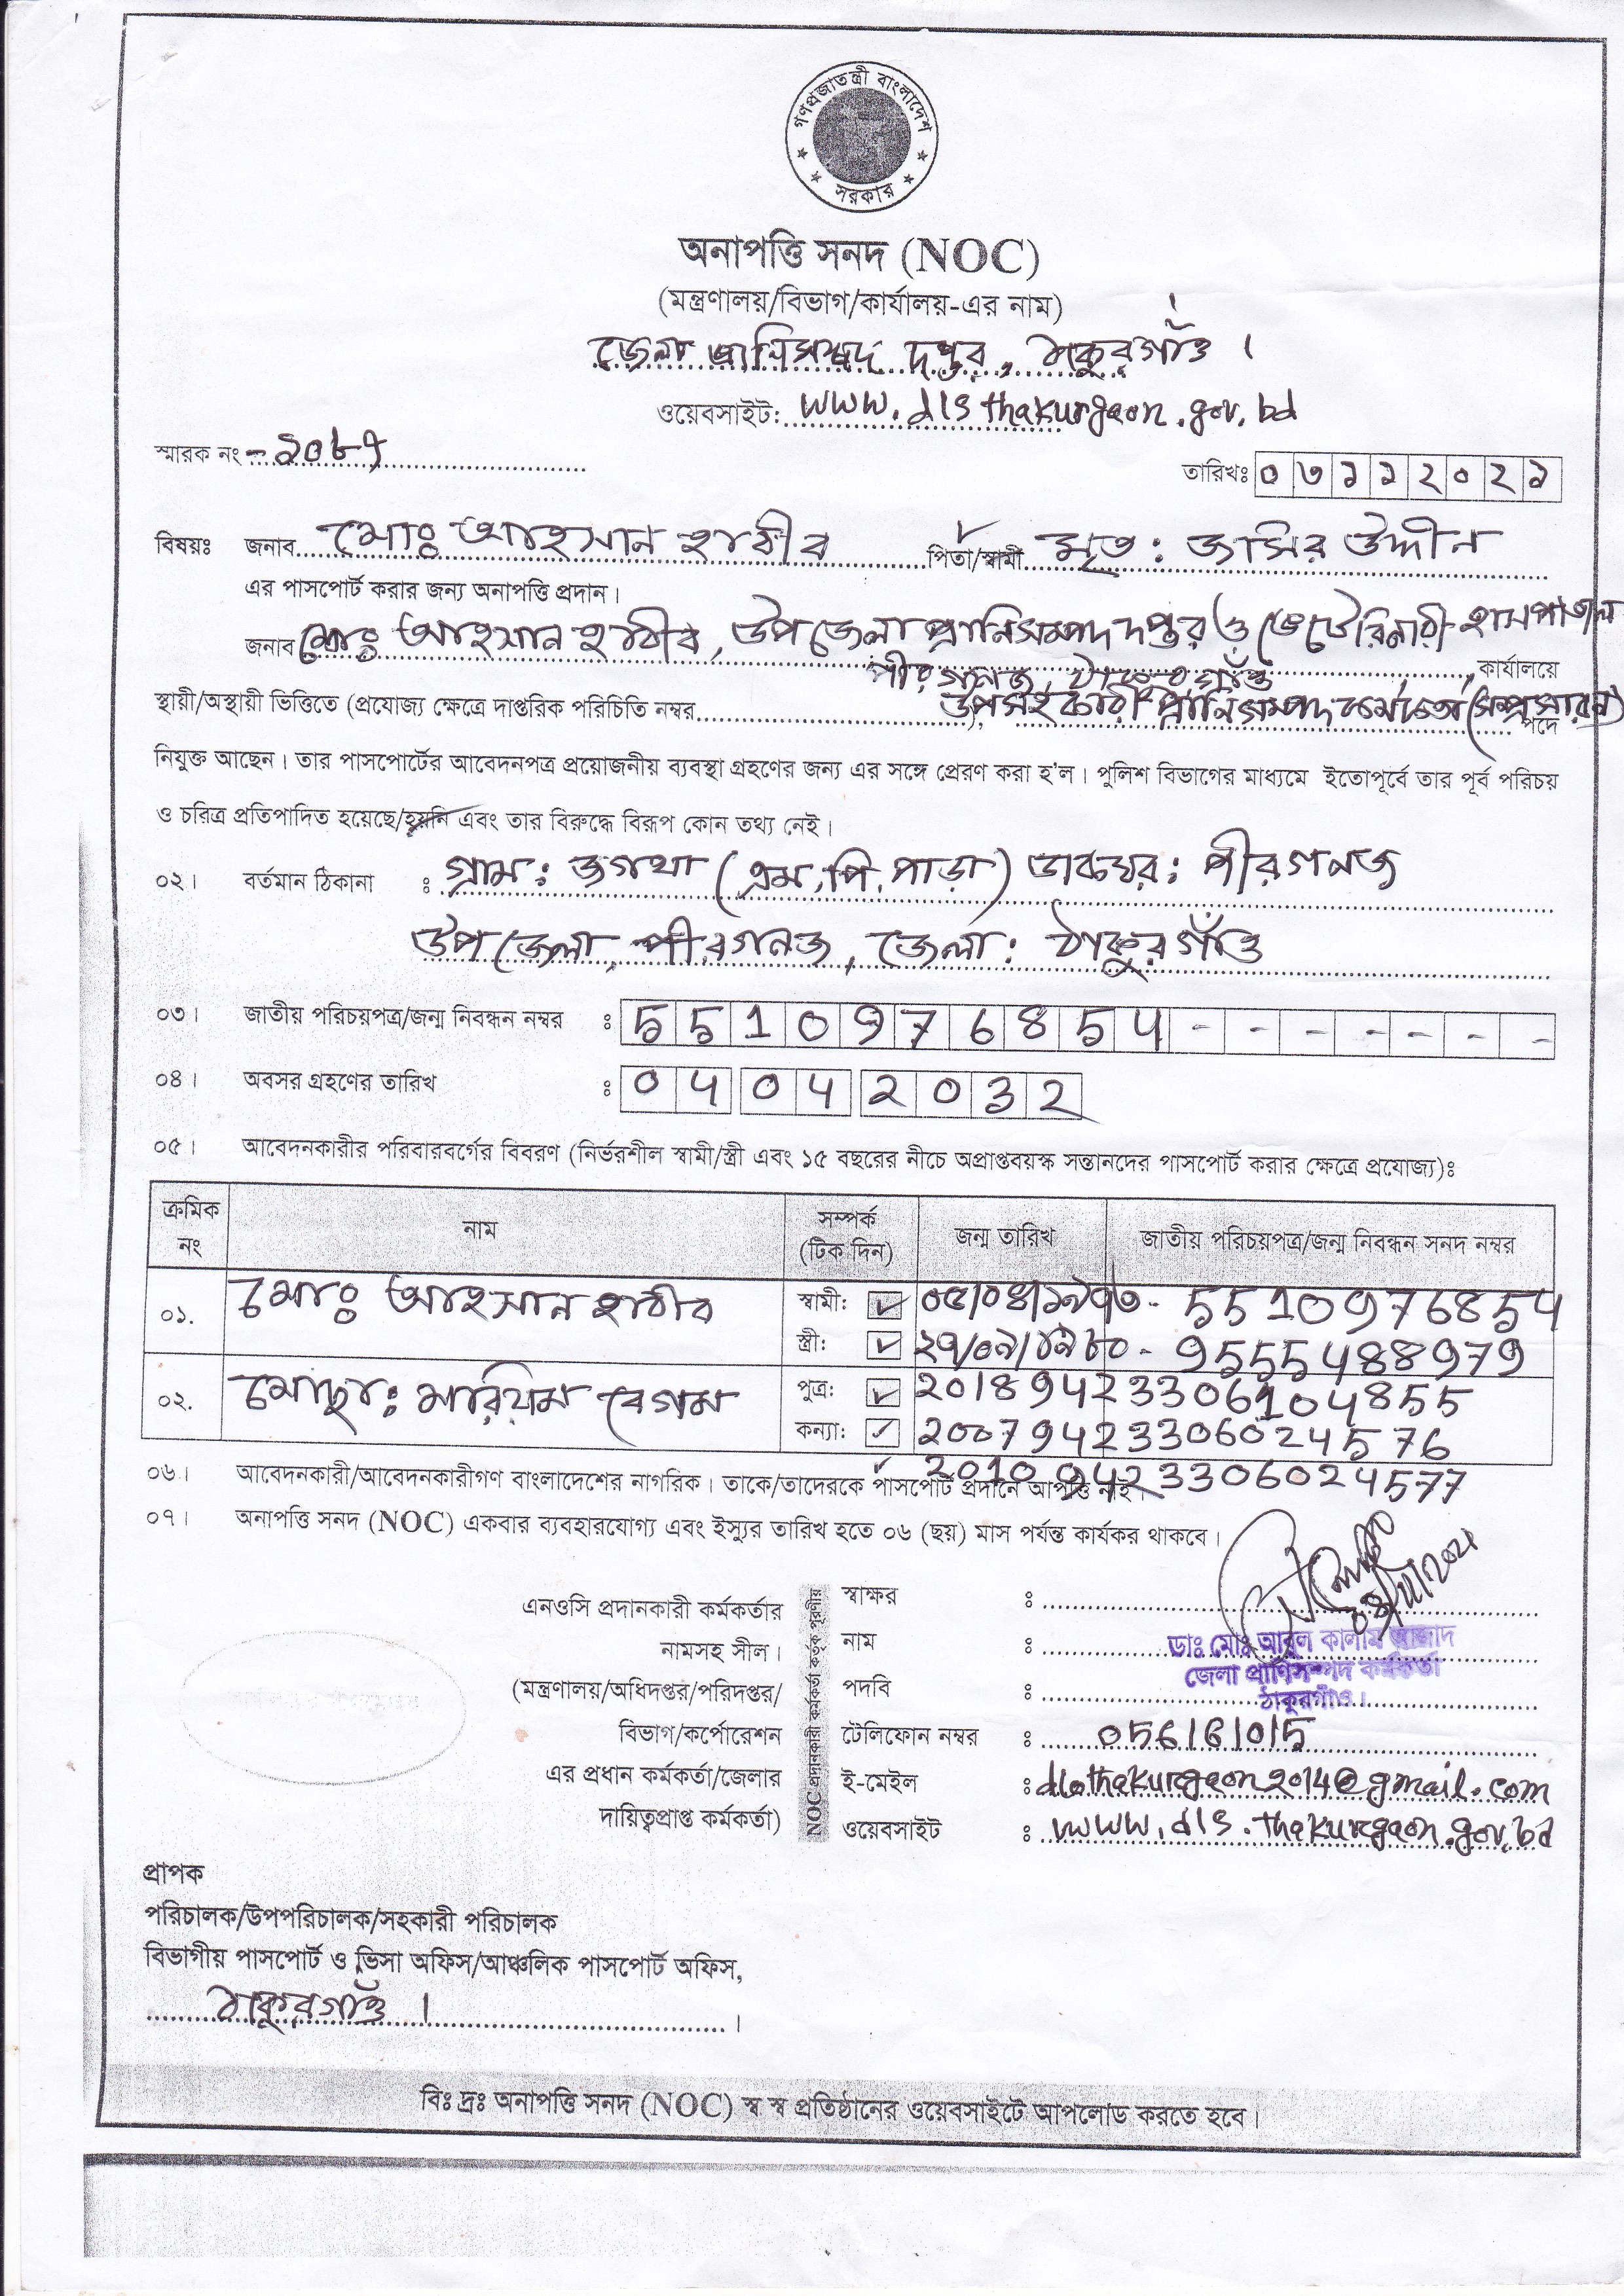 গণপ্রজাতন্ত্রী বাংলাদেশ
সরকার
অনাপত্তি সনদ (NOC)
(মন্ত্রণালয়/বিভাগ/কার্যালয়-এর নাম)
জেলা প্রানিসম্পদ দপ্তর, ঠাকুরগাঁও ।
ওয়েবসাইট: www.dls thakurgaon.gov.bd
স্মারক নং - ১০৮৭
তারিখঃ ০৩১১২০২১
বিষয়ঃ জনাব মোঃ আহসান হাবীব পিতা/স্বামী মৃত: জসির উদ্দীন
এর পাসপোর্ট করার জন্য অনাপত্তি প্রদান।
জনাব মোঃ আহসান হাবীব, উপজেলা প্রানিসম্পদ দপ্তর ও ভেটেরিনারী হাসপাতাল
পীরগনজ, ঠাকুরগাঁও কার্যালয়ে
স্থায়ী/অস্থায়ী ভিত্তিতে (প্রযোজ্য ক্ষেত্রে দাপ্তরিক পরিচিতি নম্বর উপসহকারী প্রানিসম্পদ কর্মকর্তা (সম্প্রসারন) পদে
নিযুক্ত আছেন। তার পাসপোর্টের আবেদনপত্র প্রয়োজনীয় ব্যবস্থা গ্রহণের জন্য এর সঙ্গে প্রেরণ করা হ'ল। পুলিশ বিভাগের মাধ্যমে ইতোপূর্বে তার পূর্ব পরিচয়
ও চরিত্র প্রতিপাদিত হয়েছে/হয়নি এবং তার বিরুদ্ধে বিরূপ কোন তথ্য নেই।
০২। বর্তমান ঠিকানা : গ্রাম: জগথা (এম.পি.পাড়া) ডাকঘর: পীরগনজ
উপজেলা, পীরগনজ, জেলা: ঠাকুরগাঁও
০৩। জাতীয় পরিচয়পত্র/জন্ম নিবন্ধন নম্বর ঃ 5510976854 - - - - - - -
০৪। অবসর গ্রহণের তারিখ ঃ 04042032
০৫। আবেদনকারীর পরিবারবর্গের বিবরণ (নির্ভরশীল স্বামী/স্ত্রী এবং ১৫ বছরের নীচে অপ্রাপ্তবয়স্ক সন্তানদের পাসপোর্ট করার ক্ষেত্রে প্রযোজ্য)ঃ
ক্রমিক নং নাম সম্পর্ক (টিক দিন) জন্ম তারিখ জাতীয় পরিচয়পত্র/জন্ম নিবন্ধন সনদ নম্বর
০১. মোঃ আহসান হাবীব স্বামী: ✓ ০৫/০৪/১৯৭৩ - 5510976854
স্ত্রী: ✓ ২৭/০৯/১৯৮০ - 9555488979
০২. মোছা: মারিয়াম বেগম পুত্র: ✓ 20189423306104855
কন্যা: ✓ 20079423306024576
✓ 20109423306024577
০৬। আবেদনকারী/আবেদনকারীগণ বাংলাদেশের নাগরিক। তাকে/তাদেরকে পাসপোর্ট প্রদানে আপত্তি নাই।
০৭। অনাপত্তি সনদ (NOC) একবার ব্যবহারযোগ্য এবং ইস্যুর তারিখ হতে ০৬ (ছয়) মাস পর্যন্ত কার্যকর থাকবে।
এনওসি প্রদানকারী কর্মকর্তার
নামসহ সীল।
(মন্ত্রণালয়/অধিদপ্তর/পরিদপ্তর/
বিভাগ/কর্পোরেশন
এর প্রধান কর্মকর্তা/জেলার
দায়িত্বপ্রাপ্ত কর্মকর্তা)
NOC প্রদানকারী কর্মকর্তা কর্তৃক পূরণীয়
স্বাক্ষর ঃ
নাম ঃ ডাঃ মোঃ আবুল কালাম আজাদ
পদবি ঃ জেলা প্রাণিসম্পদ কর্মকর্তা
ঠাকুরগাঁও।
টেলিফোন নম্বর ঃ 056161015
ই-মেইল ঃ dlothakurgaon2014@gmail.com
ওয়েবসাইট ঃ www.dls.thakurgaon.gov.bd
প্রাপক
পরিচালক/উপপরিচালক/সহকারী পরিচালক
বিভাগীয় পাসপোর্ট ও ভিসা অফিস/আঞ্চলিক পাসপোর্ট অফিস,
ঠাকুরগাঁও ।
বিঃ দ্রঃ অনাপত্তি সনদ (NOC) স্ব স্ব প্রতিষ্ঠানের ওয়েবসাইটে আপলোড করতে হবে।